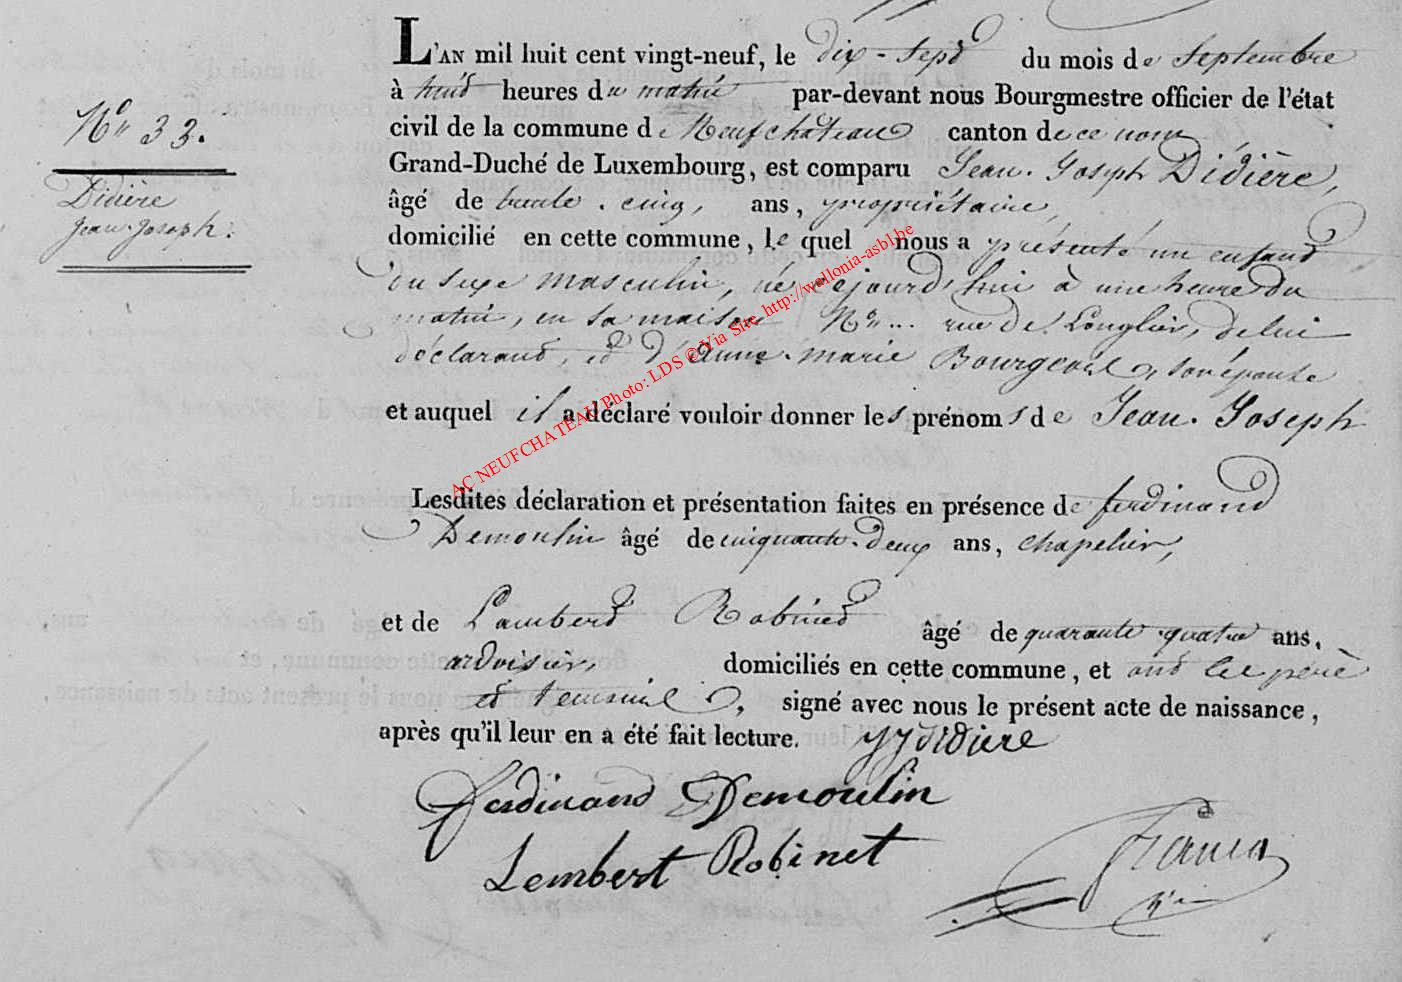 L'AN mil huit cent vingt-neuf, le dix-sept du mois de Septembre
à huit heures du matin par-devant nous Bourgmestre officier de l'état
N° 33.
civil de la commune de Neufchateau canton de ce nom
Grand-Duché de Luxembourg, est comparu Jean-Joseph Didière,
Didière
Jean-Joseph.
âgé de trente-cinq, ans, propriétaire,
domicilié en cette commune, le quel nous a présenté un enfant
du sexe masculin, né cejourd'hui à une heure du
matin, en sa maison N° ... rue de Longlier, de lui
déclarant, et d'Anne-marie Bourgeois, son épouse
et auquel il a déclaré vouloir donner les prénoms de Jean-Joseph
AC NEUFCHATEAU Photo: LDS © Via Site http://wallonia-asbl.be
Lesdites déclaration et présentation faites en présence de ferdinand
Demoulin âgé de cinquante-deux ans, chapelier,
et de Lambert Robinet âgé de quarante-quatre ans,
ardoisier, domiciliés en cette commune, et ont les père
et temoins, signé avec nous le présent acte de naissance,
après qu'il leur en a été fait lecture. JJ Didière
Ferdinand Demoulin
Lembert Robinet